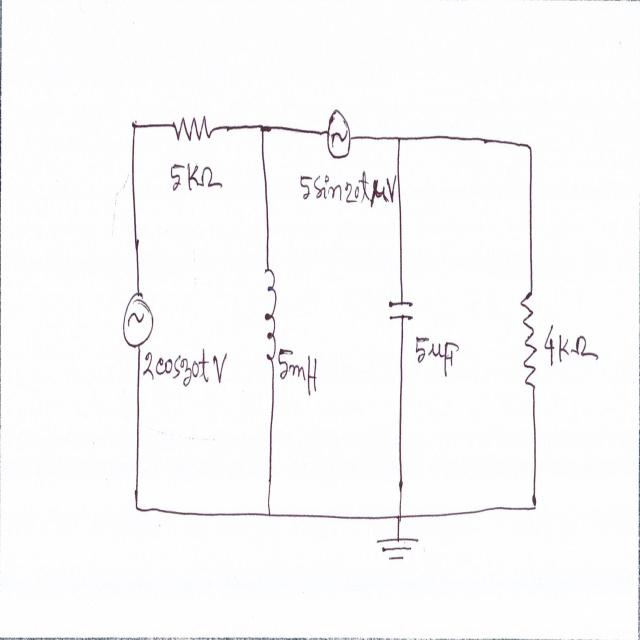 5KΩ
5sin20tμV
2cos30t V
5mH
5μF
4KΩ